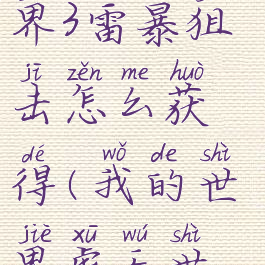 界3雷暴狙
jī zěn me huò
击怎么获
dé wǒ de shì
得(我的世
jiè xū wú shì